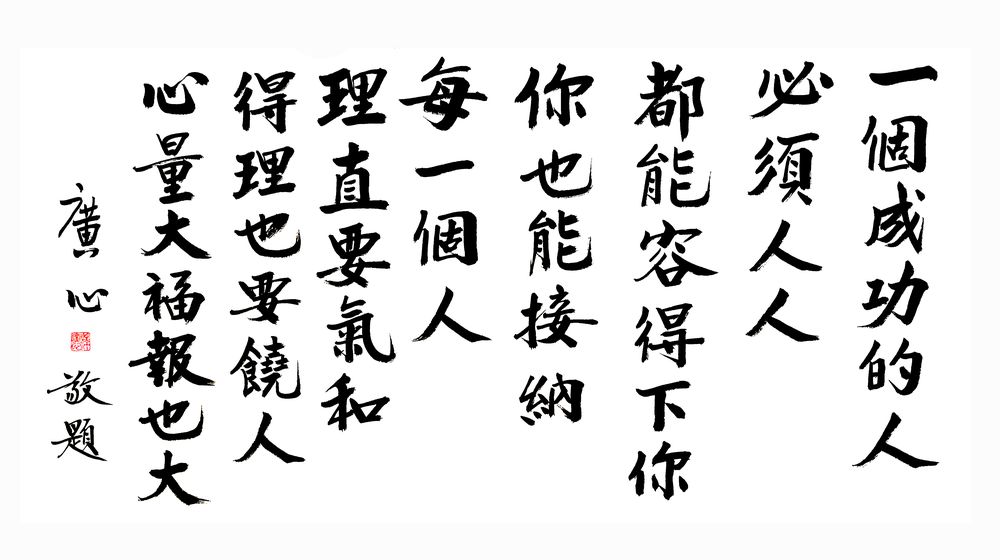 一個成功的人
必須人人
都能容得下你
你也能接納
每一個人
理直要氣和
得理也要饒人
心量大福報也大
廣心敬題